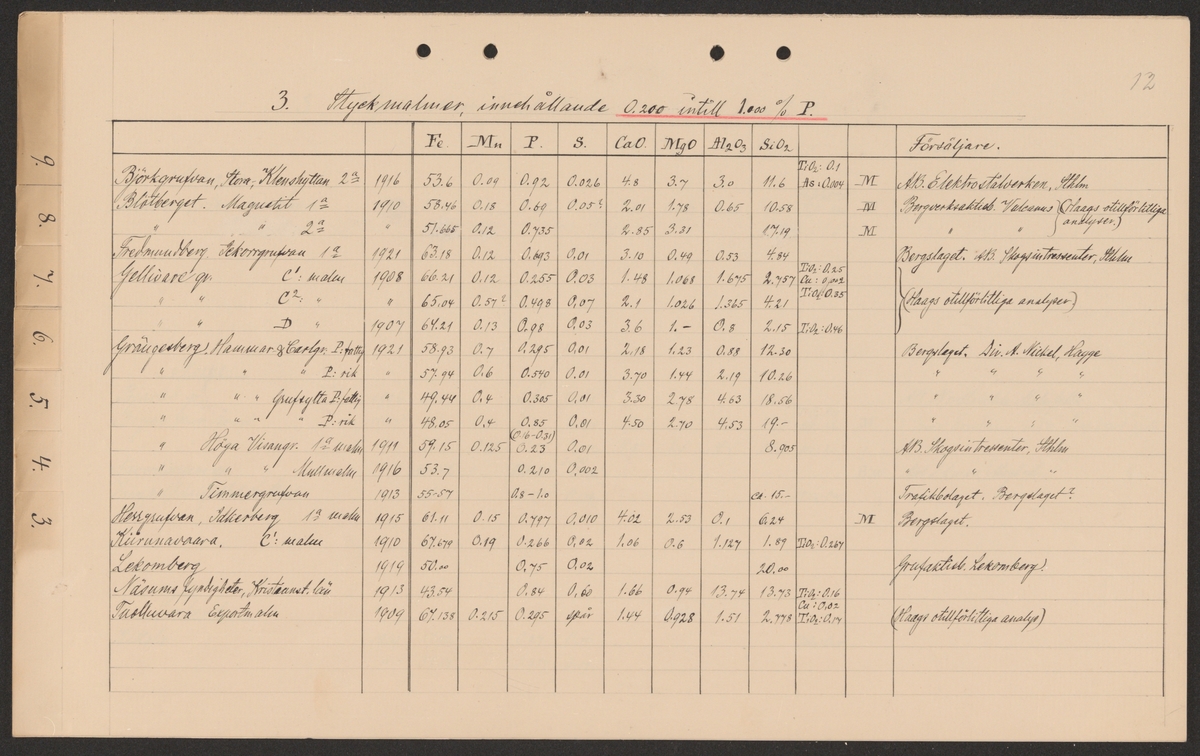 12
3. Styckmalmer, innehållande 0.200 intill 1.000 % P.
Fe. Mn P. S. CaO. MgO Al2O3 SiO2 Försäljare.
Björkgrufvan, Stora, Klenshyttan 2a 1916 53.6 0.09 0.92 0.026 4.8 3.7 3.0 11.6 TiO2: 0.1 As: 0.004 M AB. Elektrostålverken, Sthlm
Blötberget. Magnetit 1a 1910 58.46 0.18 0.69 0.05? 2.01 1.78 0.65 10.58 M Bergverksaktieb. Vulcanus (Haags otillförlitliga analyser.)
" " 2a " 51.665 0.12 0.735 2.85 3.31 17.19 M " "
Fredmundberg Sekorrgrufvan 1a 1921 63.18 0.12 0.693 0.01 3.10 0.49 0.53 4.84 Bergslaget. AB. Skogsintressenter, Sthlm
Gellivare gr. C1: malm 1908 66.21 0.12 0.255 0.03 1.48 1.068 1.675 2.757 TiO2: 0.25 Cu: 0.002
" " C2: " " 65.04 0.57? 0.498 0.07 2.1 1.026 1.365 4.21 TiO2: 0.35 (Haags otillförlitliga analyser)
" " D " 1907 64.21 0.13 0.98 0.03 3.6 1.- 0.8 2.15 TiO2: 0.46
Grängesberg. Hammar & Carlgr. P: fattig 1921 58.93 0.7 0.295 0.01 2.18 1.23 0.88 12.30 Bergslaget. Div. A. Nickel, Hagge
" " " P: rik " 57.94 0.6 0.540 0.01 3.70 1.44 2.19 10.26 " " " "
" " " Grufsylta P: fattig " 49.44 0.4 0.305 0.01 3.30 2.78 4.63 18.56 " " "
" " " " P: rik " 48.05 0.4 0.85 0.01 4.50 2.70 4.53 19.- " " " "
" Höga Visangr. 1a malm 1911 59.15 0.125 (0.16-0.31) 0.23 0.01 8.905 AB. Skogsintressenter, Sthlm
" " " Mullmalm 1916 53.7 0.210 0.002 " " "
" Timmergrufvan 1913 55-57 0.8-1.0 ca. 15.- Trafikbolaget. Bergslaget?
Herrgrufvan, Idkerberg 1a malm 1915 61.11 0.15 0.797 0.010 4.02 2.53 0.1 6.24 M Bergslaget.
Kiirunavaara. C1: malm 1910 67.679 0.19 0.266 0.02 1.06 0.6 1.127 1.89 TiO2: 0.267
Lekomberg 1919 50.00 0.75 0.02 20.00 Grufaktieb. Lekomberg.
Näsums fyndigheter, Kristianst. län 1913 43.54 0.84 0.60 1.66 0.94 13.74 13.73 TiO2: 0.16
Tuolluvara Exportmalm 1909 67.138 0.215 0.295 spår 1.44 0.928 1.51 2.778 Cu: 0.02 TiO2: 0.17 (Haags otillförlitliga analys)
9.
8.
7.
6.
5.
4.
3.